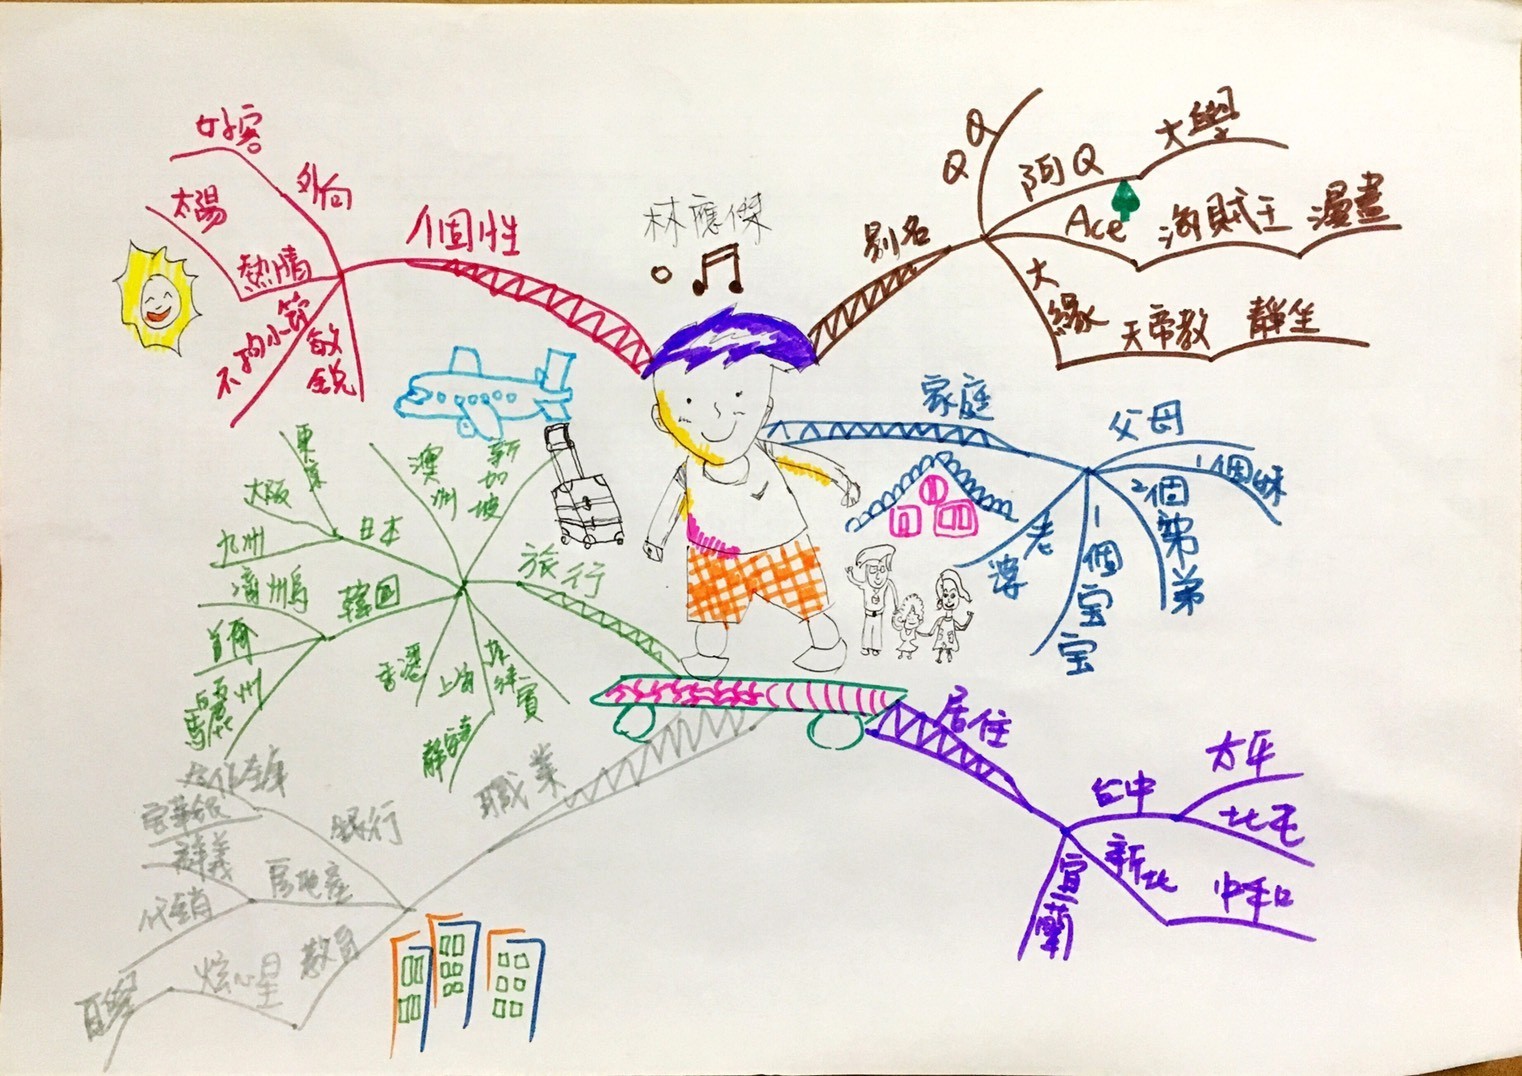 林應傑
個性
外向
好客
熱情
太陽
不拘小節
敏銳
別名
QQ
阿Q
大學
Ace
海賊王
漫畫
大緣
天帝教
靜坐
家庭
父母
1個妹
2個弟弟
1個宝宝
老婆
旅行
新加坡
澳洲
日本
東京
大阪
九州
韓国
濟州島
首爾
香港
上海
菲律賓
居住
台中
太平
北屯
新北
中和
宜蘭
職業
銀行
房地產
代銷
教員
炫心星